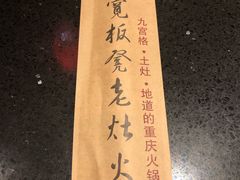 九宫格·土灶·地道的重庆火锅
宽板凳老灶火